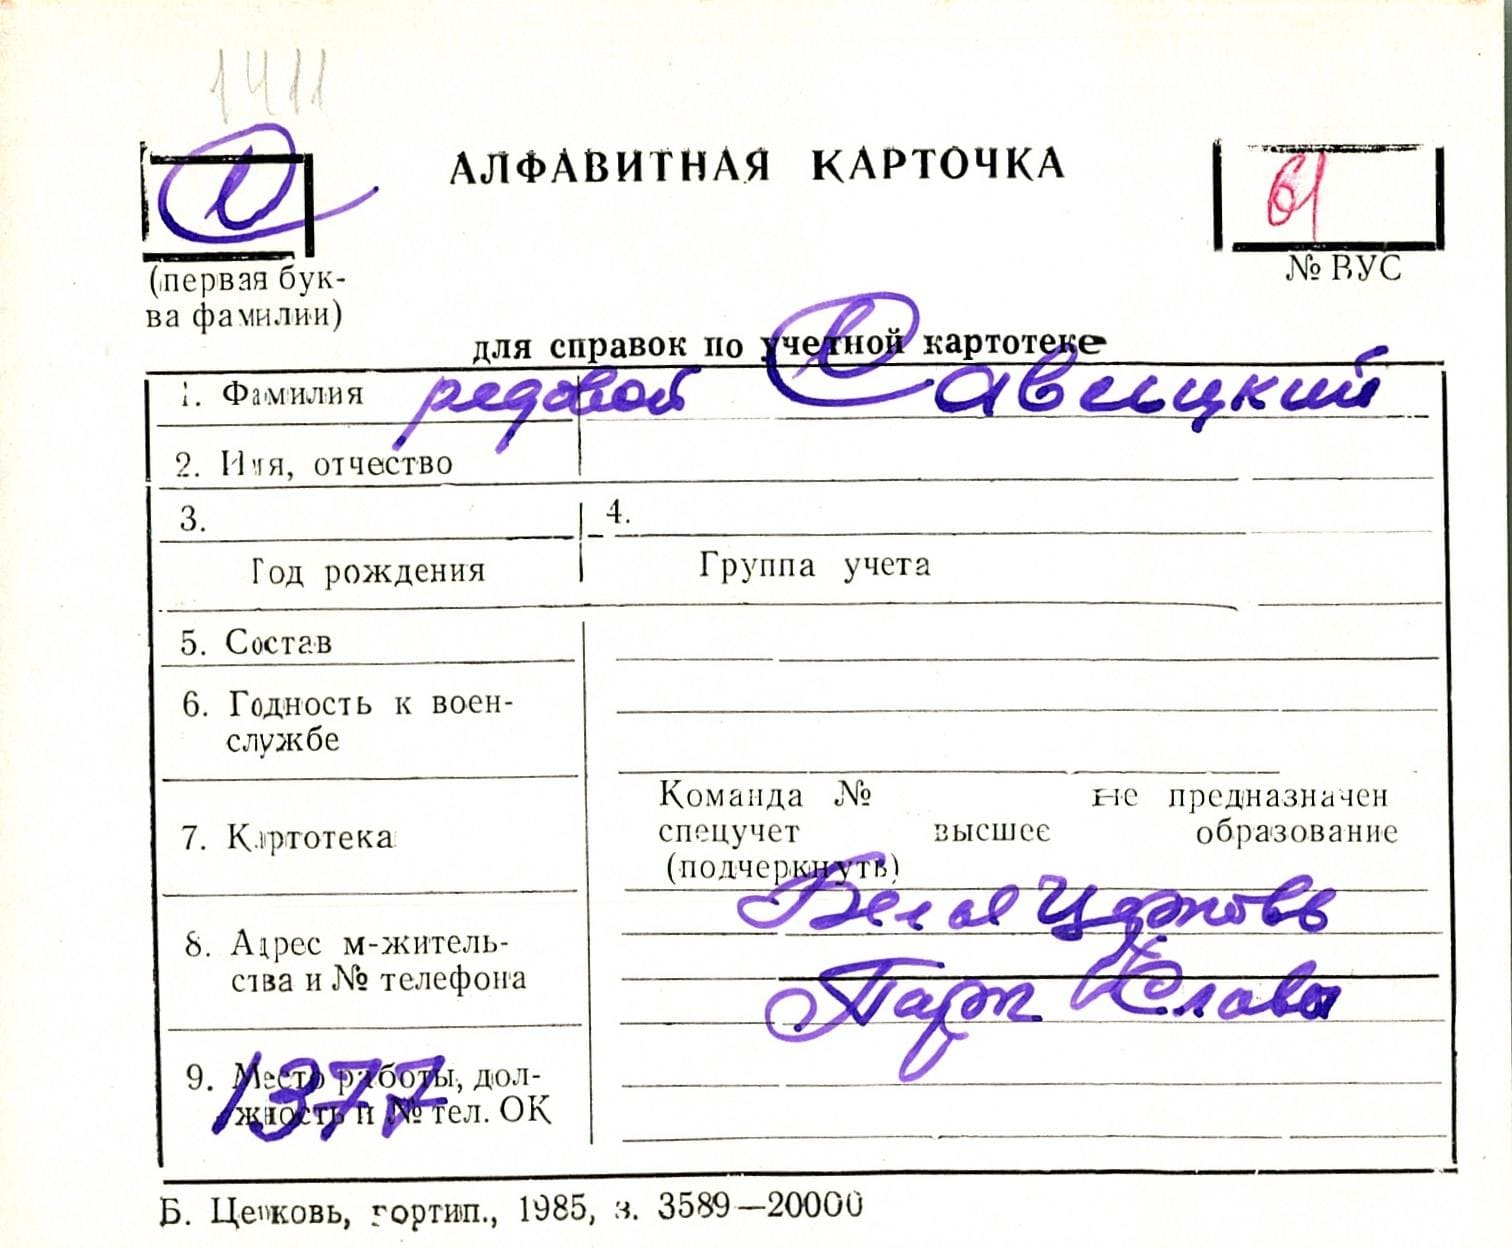 1411
С
АЛФАВИТНАЯ КАРТОЧКА
61
(первая бук-
ва фамилии)
№ ВУС
для справок по учетной картотеке
1. Фамилия рядовой Савицкий
2. Имя, отчество
3. 4.
Год рождения Группа учета
5. Состав
6. Годность к воен-
службе
Команда № не предназначен
7. Картотека спецучет высшее образование
(подчеркнуть)
Белая Церковь
8. Адрес м-житель-
ства и № телефона
Парк Славы
9. Место работы, дол-
жность и № тел. ОК
1377
Б. Церковь, гортип., 1985, з. 3589—20000